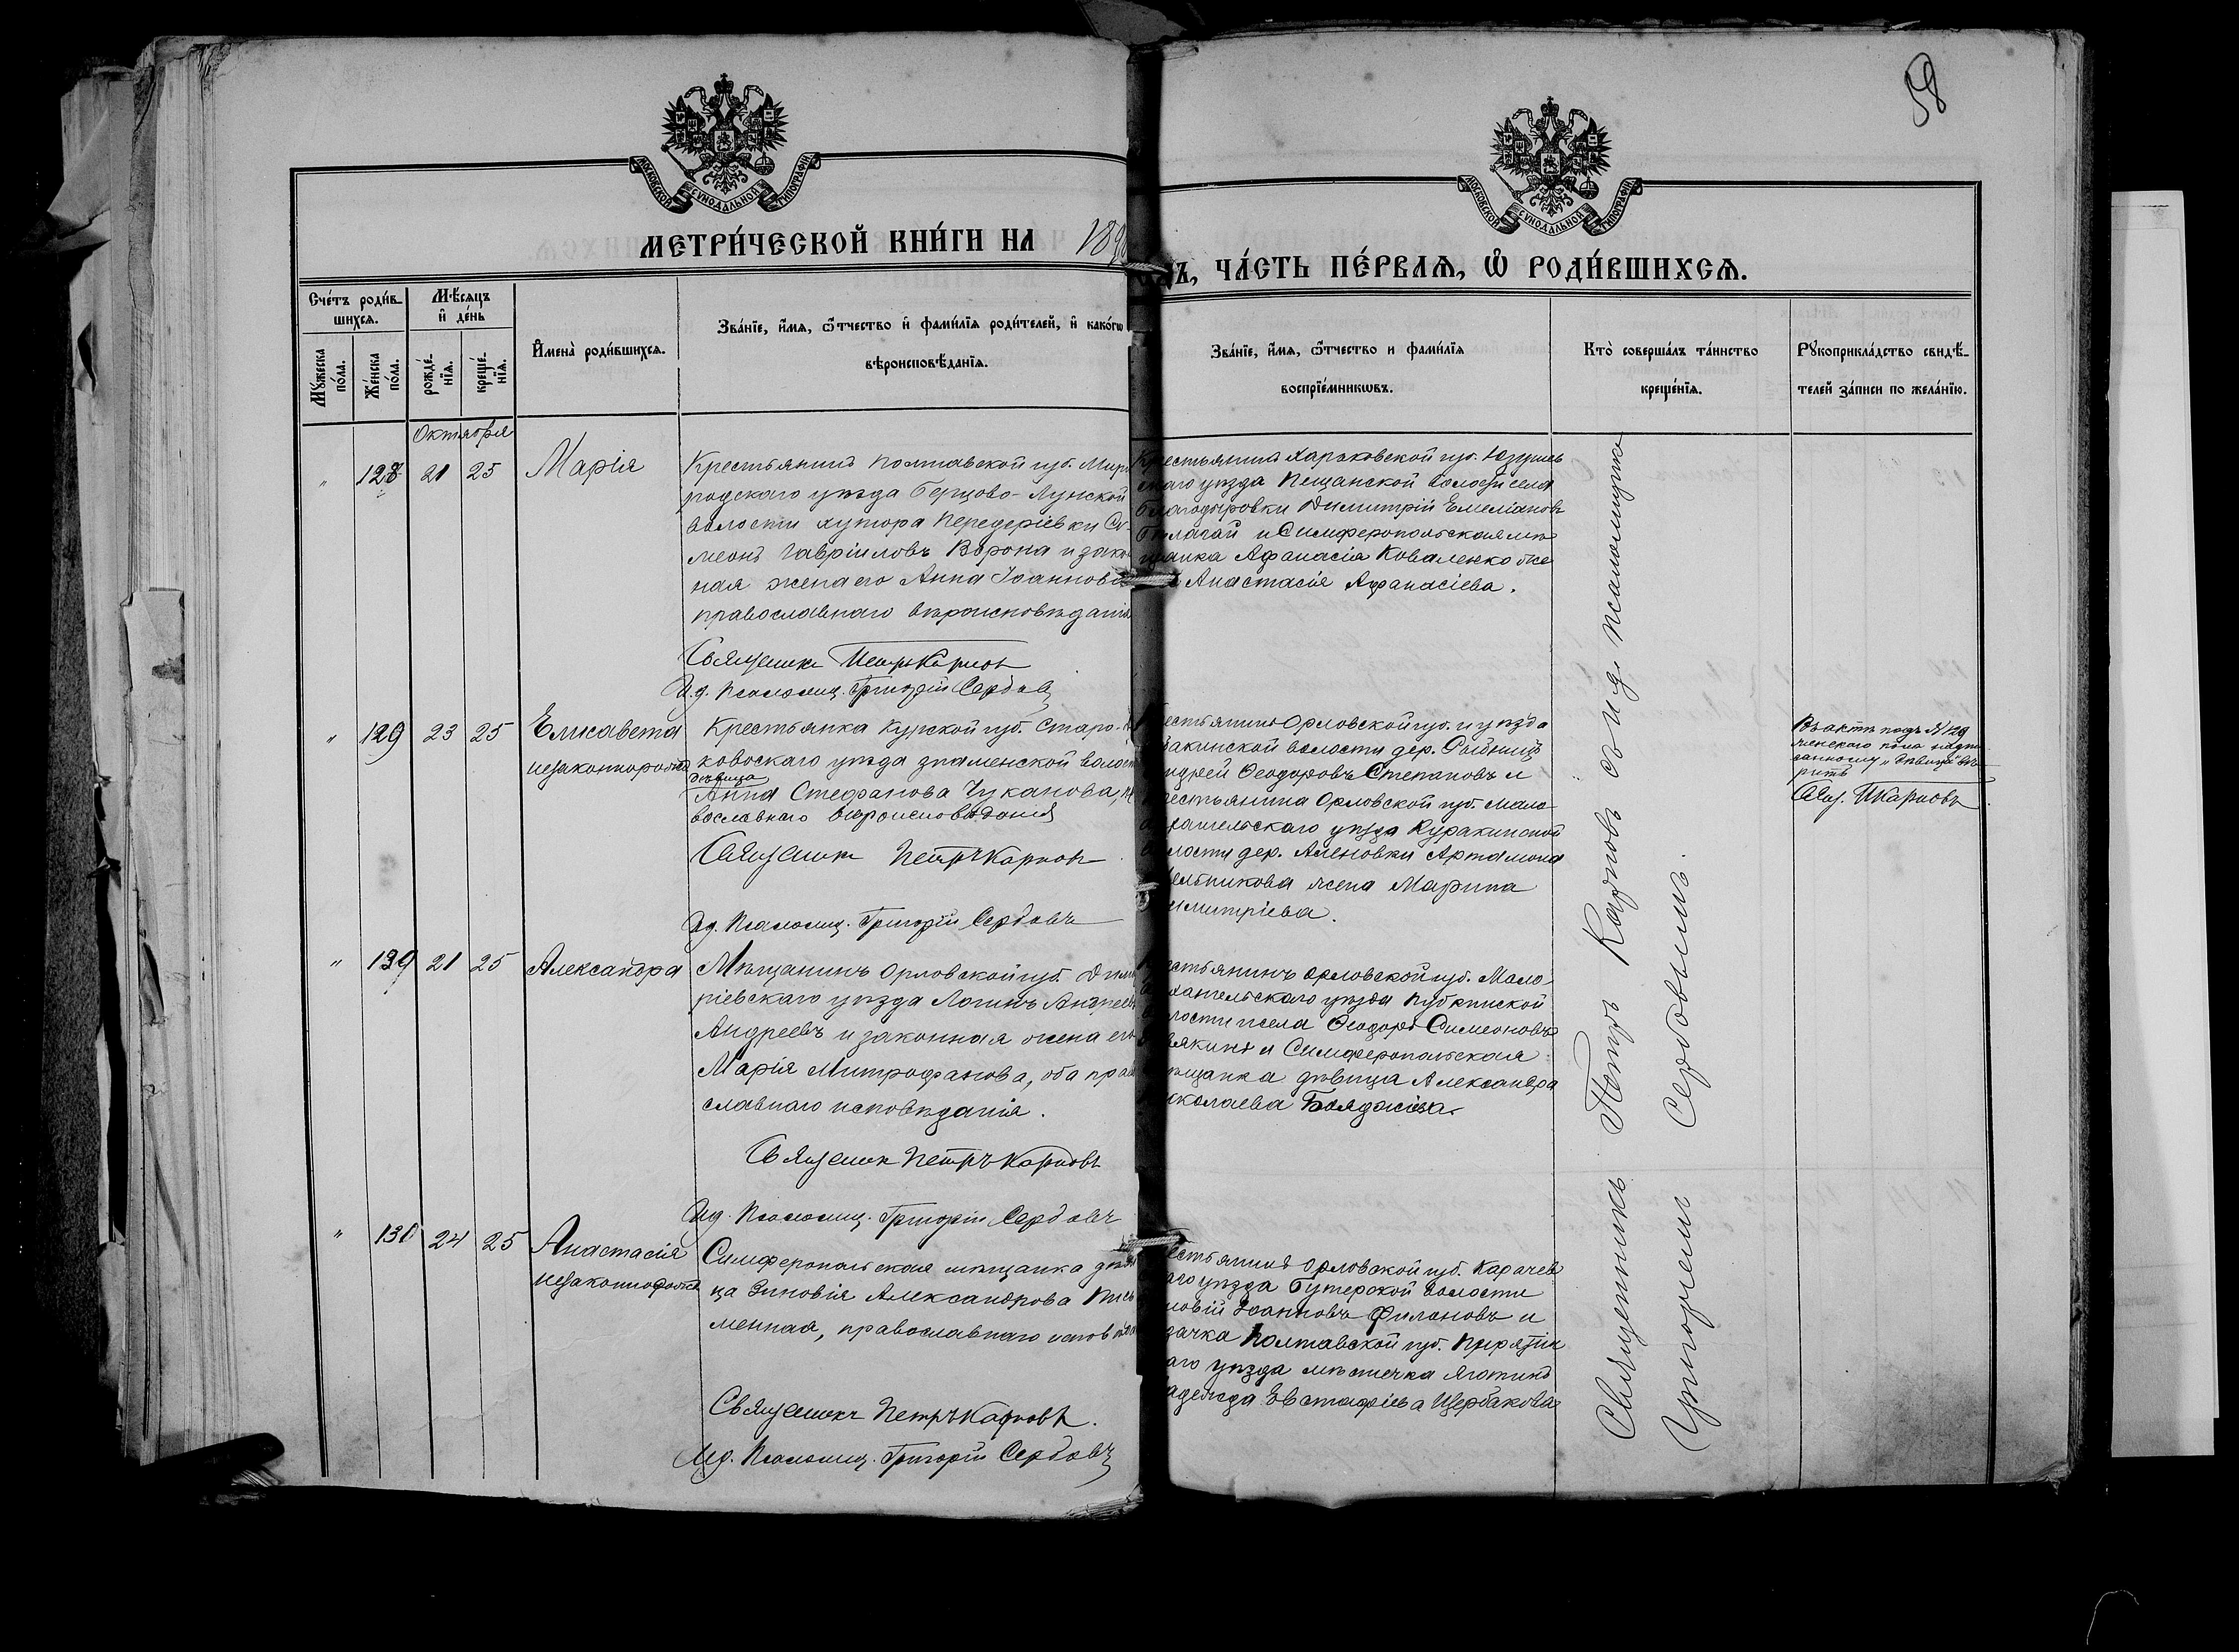 58
МОСКОВСКОЙ СѴНОДАЛЬНОЙ ТИПОГРАФІИ
МОСКОВСКОЙ СѴНОДАЛЬНОЙ ТИПОГРАФІИ
МЕТРИ́ЧЕСКОЙ КНИ́ГИ НА 189
ДЪ, ЧА́СТЬ ПЕ́РВАѦ, Ѽ РОДИ́ВШИХСѦ.
Сче́тъ роди́в-
шихсѧ.
Мꙋ́жеска по́ла.
Же́нска по́ла.
Мѣ́сѧцъ
и҆ де́нь
рожде́-
нїѧ.
креще́-
нїѧ.
И҆мена̀ роди́вшихсѧ.
Зва́нїе, и҆́мѧ, ѻ҆́тчество и҆ фами́лїѧ роди́телей, и҆ како́гѡ
вѣроисповѣ́данїѧ.
Зва́нїе, и҆́мѧ, ѻ҆́тчество и фами́лїѧ
воспрїе́мникѡвъ.
Кто̀ соверша́лъ та́инство
креще́нїѧ.
Рꙋкоприкла́дство свидѣ́-
телей за́писи по жела́нїю.
Октября
" 128 21 25 Марія
Крестьянинъ Полтавской губ. Мирг
родскаго уѣзда Берцово-Лунской
волости хутора Передеріевки Си
меонъ Гавріиловъ Ворона и закон
ная жена его Анна Іоаннова
православнаго вѣроисповѣданія
Священник Петръ Карповъ
И.д. Псаломщ. Григорій Сербовъ
Крестьянинъ Харьковской губ. Изюмск
скаго уѣзда Пещанской волости села
Благодаровки Димитрій Емеліановъ
Балагай и Симферопольская мѣ
щанка Афанасія Коваленко же
Анастасія Афанасіева.
" 129 23 25 Елисавета
незаконнорожд
Крестьянка Курской губ. Старо-
ковскаго уѣзда Знаменской волост
дѣвица
Анна Стефанова Чуканова,
вославнаго вѣроисповѣданія
Священник Петръ Карповъ
И.д. Псаломщ. Григорій Сербовъ
естьянинъ Орловской губ. и уѣзда
акинской волости дер.
ндрей Ѳеодоровъ Степановъ и
рестьянина Орловской губ. Мало-
рхангельскаго уѣзда Куракинской
лости дер. Аленовки Артамона
ельникова жена Марина
имитріева.
Въ актѣ подъ №129
женскаго пола надпи
санному „дѣвица" вѣ
рить
Свящ. П Карповъ
" 129 21 25 Александра
Мѣщанинъ Орловской губ. Дими
ріевскаго уѣзда Логинъ Андреевъ
Андреевъ и законная жена его
Марія Митрофанова, оба прав
славнаго исповѣданія.
Священник Петръ Карповъ
И.д. Псаломщ. Григорій Сербовъ
естьянинъ Орловской губ. Мало-
хангельскаго уѣзда Губкинской
лости и села Ѳеодоръ Симеоновъ
вякинъ и Симферопольская
ѣщанка дѣвица Александра
иколаева
" 130 24 25 Анастасія
незаконнорожд
Симферопольская мѣщанка дѣви
ца Зиновія Александрова Пись
менная, православнаго исповѣдан
Священникъ Петръ Карповъ.
И.д. Псаломщ. Григорій Сербовъ
естьянинъ Орловской губ. Карачев
аго уѣзда Бутерской волости
новій Іоанновъ Филоновъ и
зачка Полтавской губ. Пирятин
аго уѣзда мѣстечка Яготинъ
адежда Евстафіева Щербакова
Священникъ Петръ Карповъ съ и д. псаломщика
Григоріемъ Сербовымъ.